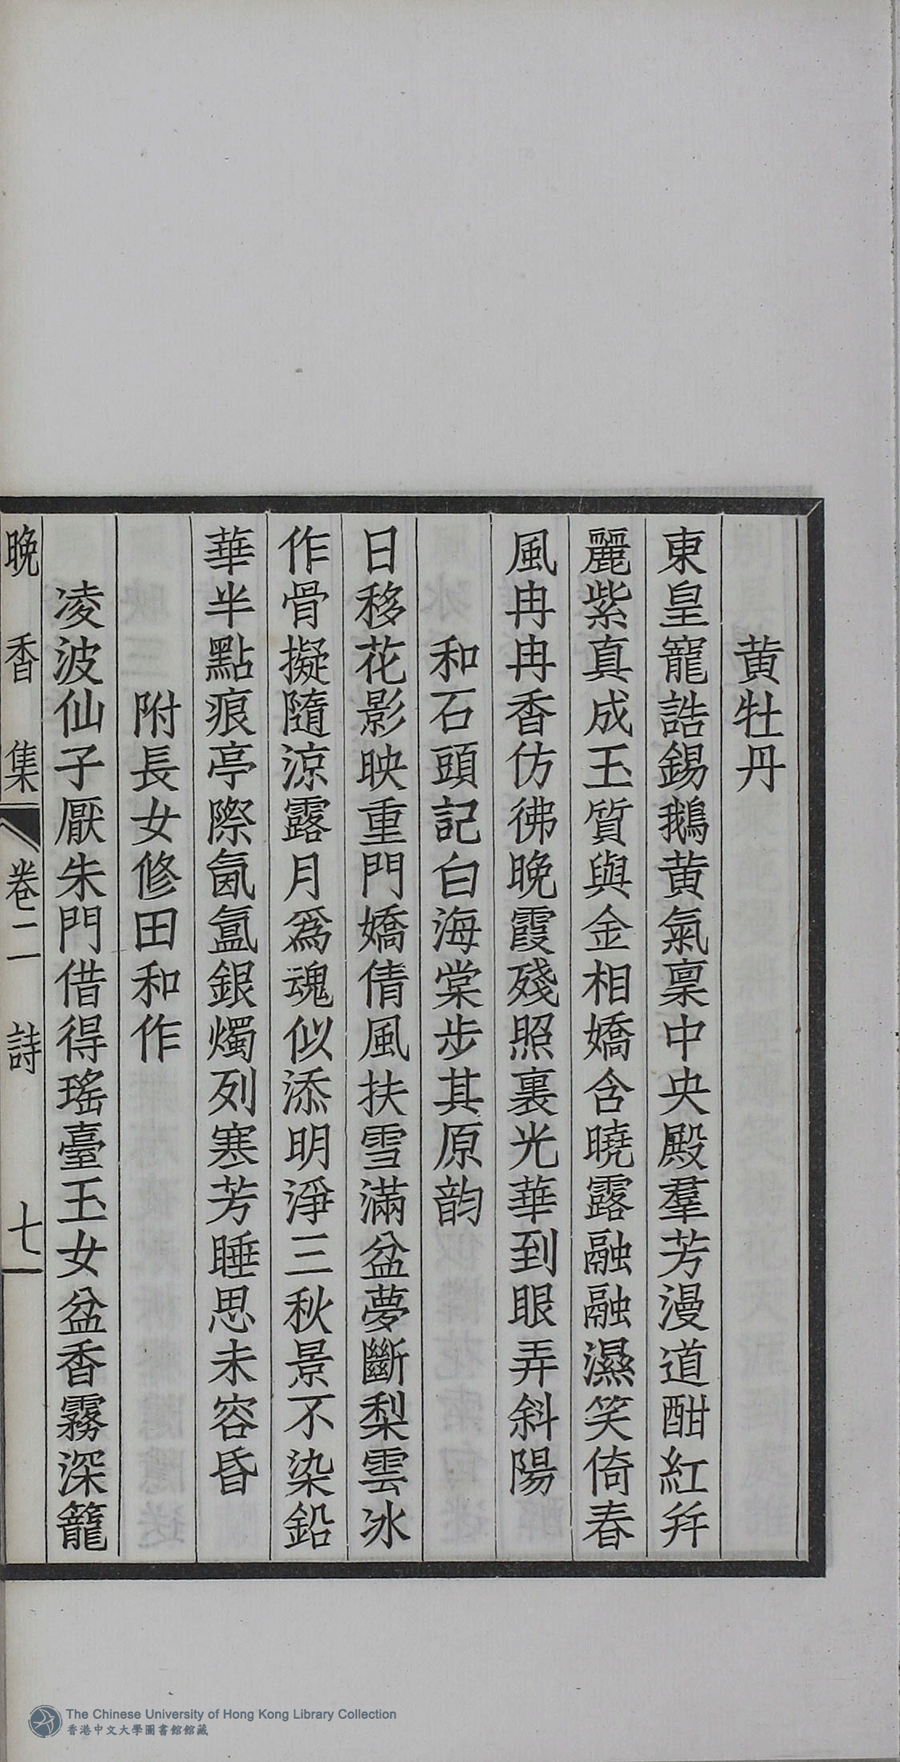 黄牡丹
東皇寵誥錫鵝黄氣禀中央殿羣芳漫道酣紅幷
麗紫真成玉質與金相嬌含曉露融融濕笑倚春
風冉冉香仿彿晚霞殘照裏光華到眼弄斜陽
和石頭記白海棠步其原韵
日移花影映重門嬌倩風扶雪滿盆夢斷梨雲冰
作骨擬隨涼露月爲魂似添明淨三秋景不染鉛
華半點痕亭際氤氲銀燭列寒芳睡思未容昏
附長女修田和作
凌波仙子厭朱門借得瑤臺玉女盆香霧深籠
晚香集 卷二 詩 七
The Chinese University of Hong Kong Library Collection
香港中文大學圖書館館藏